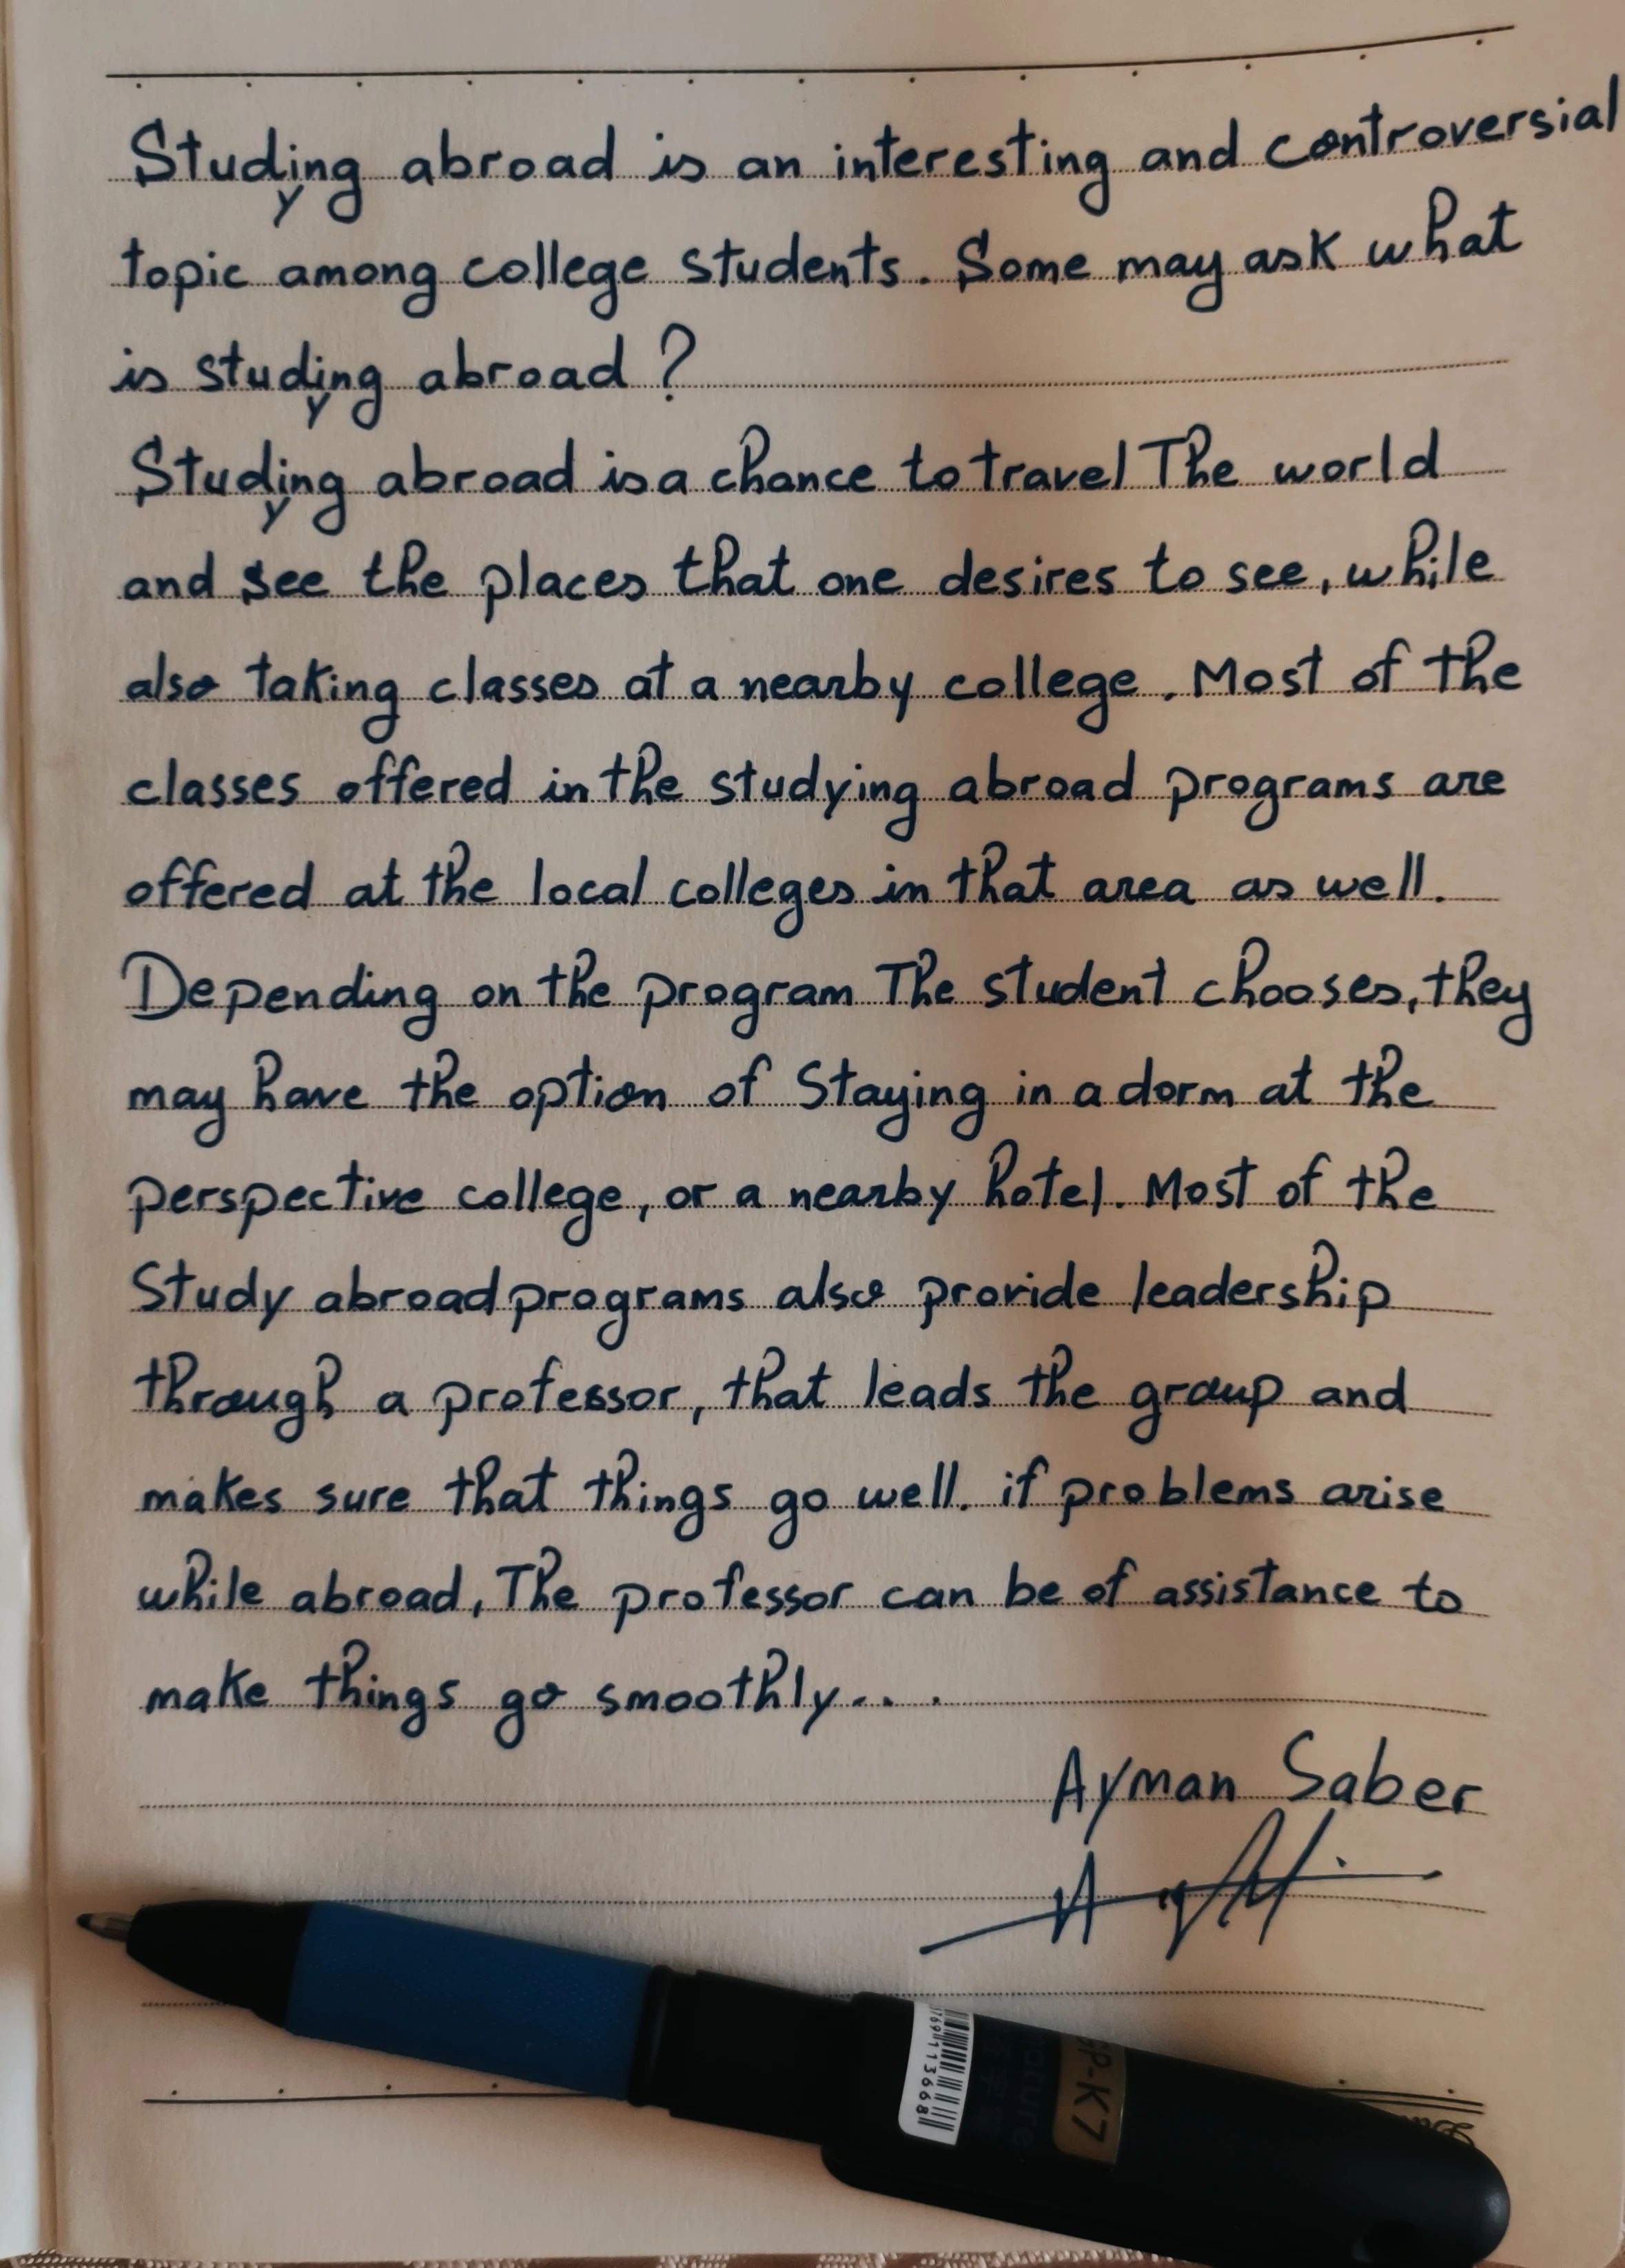 Studying abroad is an interesting and controversial
topic among college students. Some may ask what
is studying abroad ?
Studying abroad is a chance to travel The world
and see the places that one desires to see, while
also taking classes at a nearby college. Most of the
classes offered in the studying abroad programs are
offered at the local colleges in that area as well.
Depending on the program The student chooses, they
may have the option of Staying in a dorm at the
perspective college, or a nearby hotel. Most of the
Study abroad programs also provide leadership
through a professor, that leads the group and
makes sure that things go well. if problems arise
while abroad, The professor can be of assistance to
make things go smoothly...
Ayman Saber
GP-K7